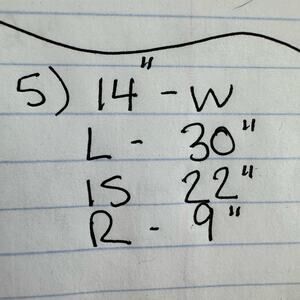 5) 14" - W
L - 30"
IS 22"
R - 9"